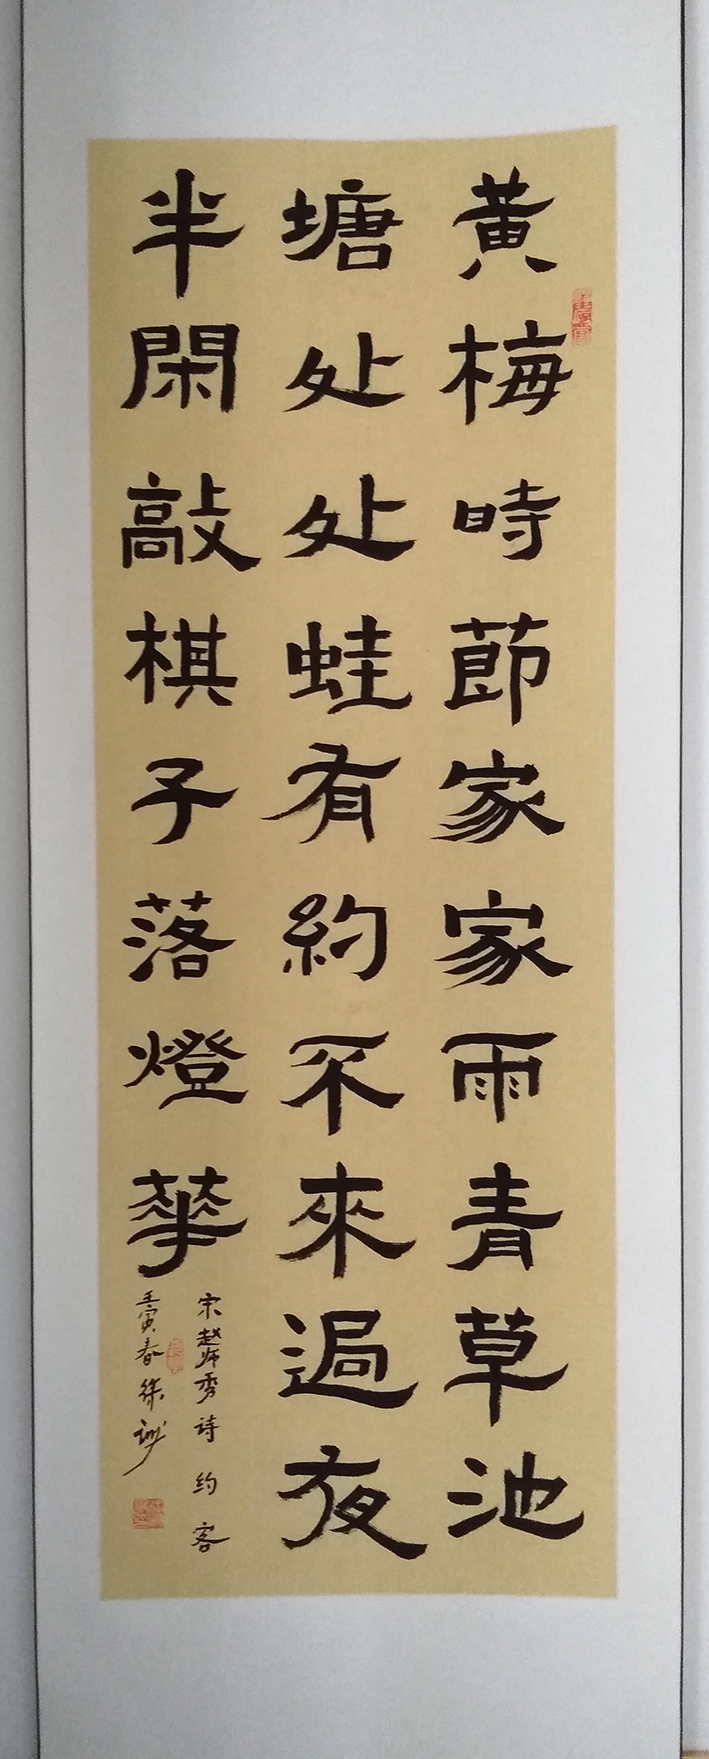 黄梅時節家家雨青草池
塘处处蛙有約不來過夜
半閑敲棋子落燈華
宋赵师秀诗 约客
壬寅春徐